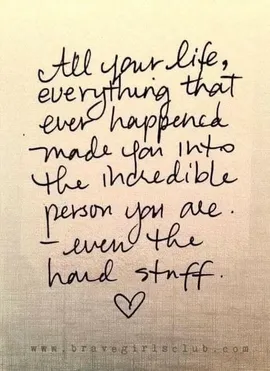 All your life,
everything that
ever happened
made you into
the incredible
person you are.
- even the
hard stuff.
www.bravegirlsclub.com